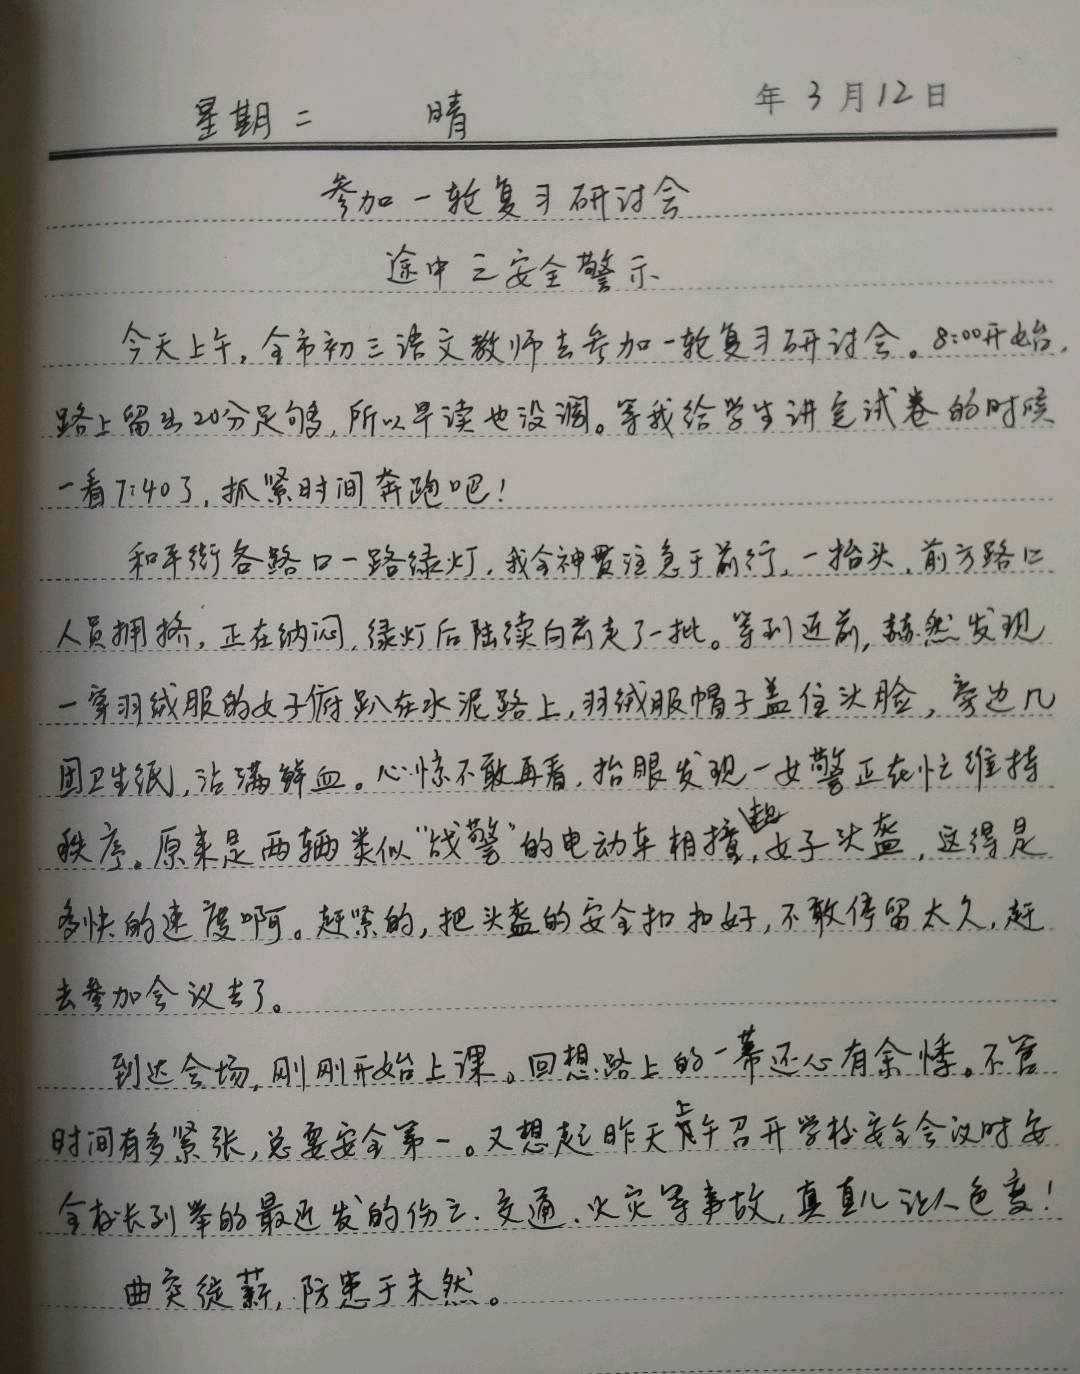 星期二 晴 年3月12日
参加一轮复习研讨会
途中之安全警示
今天上午,全市初三语文教师去参加一轮复习研讨会。8:00开始,
路上留出20分足够,所以早读也没调。等我给学生讲完试卷的时候
一看7:40了,抓紧时间奔跑吧!
和平街各路口一路绿灯,我全神贯注急于前行,一抬头,前方路口
人员拥挤,正在纳闷,绿灯后陆续向前走了一批。等到近前,赫然发现
一穿羽绒服的女子俯趴在水泥路上,羽绒服帽子盖住头脸,旁边几
团卫生纸,沾满鲜血。心惊不敢再看,抬眼发现一女警正在忙维持
秩序。原来是两辆类似“战警”的电动车相撞,女子头盔,这得是
多快的速度啊。赶紧的,把头盔的安全扣扣好,不敢停留太久,赶
去参加会议去了。
到达会场,刚刚开始上课。回想路上的一幕还心有余悸。不管
时间有多紧张,总要安全第一。又想起昨天上午召开学校安全会议时安
全校长列举的最近发的伤亡、交通、火灾等事故,真真儿让人色变!
曲突徙薪,防患于未然。